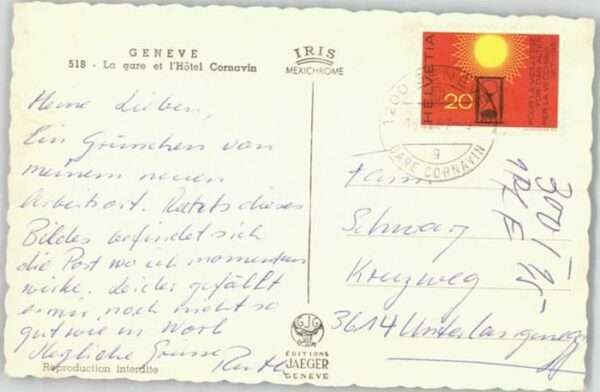 GENEVE
518 - La gare et l'Hôtel Cornavin
IRIS
MEXICHROME
Meine Lieben,
Ein Grüsschen von
meinem neuen
Arbeitsort. dieses
Bildes befindet sich
die Post wo ich momentan
wirke. Leider gefällt
es mir noch nicht so
gut wie in Worb
Herzliche Grüsse
Ruth
Reproduction interdite
EDITIONS
JAEGER
GENEVE
HELVETIA
20
1200
GARE CORNAVIN
9
Fam.
Schwarz
Kreuzweg
3614 Unterlangenegg